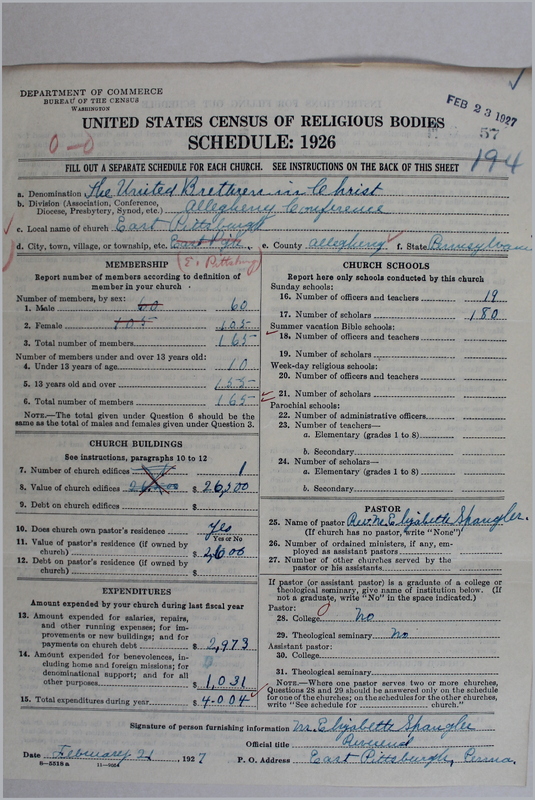 DEPARTMENT OF COMMERCE
BUREAU OF THE CENSUS
WASHINGTON
FEB 23 1927
57
UNITED STATES CENSUS OF RELIGIOUS BODIES
SCHEDULE: 1926
0-0
194
FILL OUT A SEPARATE SCHEDULE FOR EACH CHURCH. SEE INSTRUCTIONS ON THE BACK OF THIS SHEET
a. Denomination The United Brethren in Christ
b. Division (Association, Conference, Diocese, Presbytery, Synod, etc.) Allegheny Conference
c. Local name of church East Pittsburgh
d. City, town, village, or township, etc. East Pgh. e. County Allegheny f. State Pennsylvania
(E. Pittsburg)
MEMBERSHIP
Report number of members according to definition of member in your church
Number of members, by sex:
1. Male 60 60
2. Female 105 105
3. Total number of members 165
Number of members under and over 13 years old:
4. Under 13 years of age 10
5. 13 years old and over 155
6. Total number of members 165
NOTE.—The total given under Question 6 should be the same as the total of males and females given under Question 3.
CHURCH BUILDINGS
See instructions, paragraphs 10 to 12
7. Number of church edifices 1
8. Value of church edifices $ 26,500
9. Debt on church edifices $
10. Does church own pastor's residence Yes
Yes or No
11. Value of pastor's residence (if owned by church) $ 2,600
12. Debt on pastor's residence (if owned by church) $
EXPENDITURES
Amount expended by your church during last fiscal year
13. Amount expended for salaries, repairs, and other running expenses; for improvements or new buildings; and for payments on church debt $ 2,973
14. Amount expended for benevolences, including home and foreign missions; for denominational support; and for all other purposes $ 1,031
15. Total expenditures during year $ 4004
CHURCH SCHOOLS
Report here only schools conducted by this church
Sunday schools:
16. Number of officers and teachers 19
17. Number of scholars 180
Summer vacation Bible schools:
18. Number of officers and teachers
19. Number of scholars
Week-day religious schools:
20. Number of officers and teachers
21. Number of scholars
Parochial schools:
22. Number of administrative officers
23. Number of teachers—
a. Elementary (grades 1 to 8)
b. Secondary
24. Number of scholars—
a. Elementary (grades 1 to 8)
b. Secondary
PASTOR
25. Name of pastor Rev. M. Elizabette Spangler.
(If church has no pastor, write "None")
26. Number of ordained ministers, if any, employed as assistant pastors
27. Number of other churches served by the pastor or his assistants
If pastor (or assistant pastor) is a graduate of a college or theological seminary, give name of institution below. (If not a graduate, write "No" in the space indicated.)
Pastor:
28. College No
29. Theological seminary No
Assistant pastor:
30. College
31. Theological seminary
NOTE.—Where one pastor serves two or more churches, Questions 28 and 29 should be answered only on the schedule for one of the churches; on the schedules for the other churches, write "See schedule for church."
Signature of person furnishing information M. Elizabette Spangler
Official title Reverend
Date February 21, 1927 P. O. Address East Pittsburgh, Penna.
8-5518a